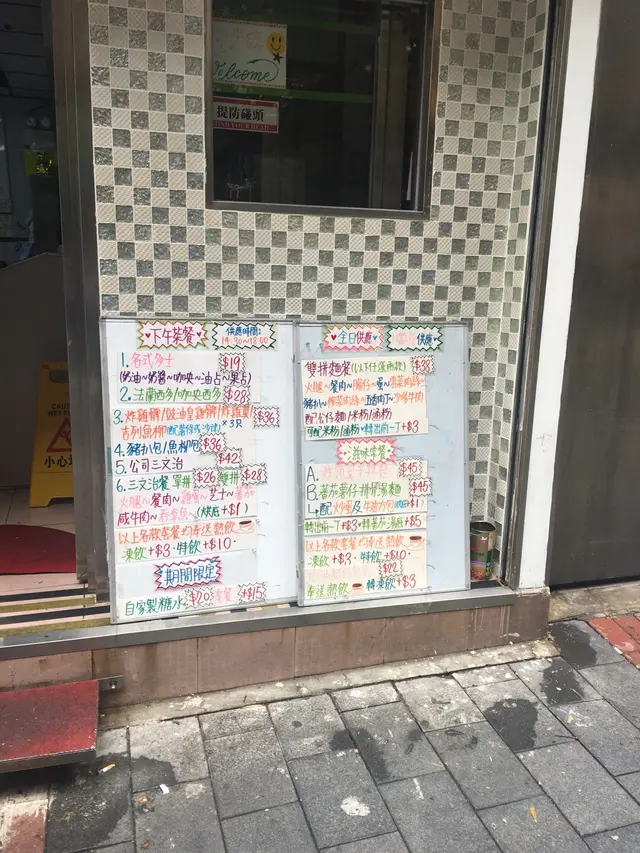 Welcome
提防碰頭
MIND YOUR HEAD
小心
♥下午茶餐♥
供應時間:
14:30~18:00
1. 各式多士 $19
(奶油~奶醬~咖央~油占~果占)
2. 法蘭西多/咖央西多 $28
3. 炸雞髀/豉油皇雞髀/炸雞翼 $36
古列魚柳(配薯條或沙律) ×3只
4. 豬扒包/魚柳包 $36
5. 公司三文治 $42
6. 三文治餐 單拼 $26 雙拼 $28
火腿~餐肉~雞蛋~芝士~蕃茄
咸牛肉~吞拿魚~(烘底+$1)
以上各款套餐均奉送熱飲
凍飲+$3·特飲+$10·
期間限定
自家製糖水 $20 套餐+$15
♥全日供應♥
供應
雙拼麵餐(以下任選兩款) $38
火腿~餐肉~腸仔~蛋~雪菜肉絲
豬扒~榨菜肉絲~五香肉丁~沙嗲牛肉
配公仔麵/米粉/油粉
可配米粉/油粉·轉出前一丁+$3
滋味常餐
A. $45
B. 蕃茄薯仔 湯麵 $45
轉出前一丁+$3·轉蕃茄湯底+$5
以上各款套餐均奉送熱飲
凍飲+$3·特飲+$10·
$22
奉送熱飲 轉凍飲+$3